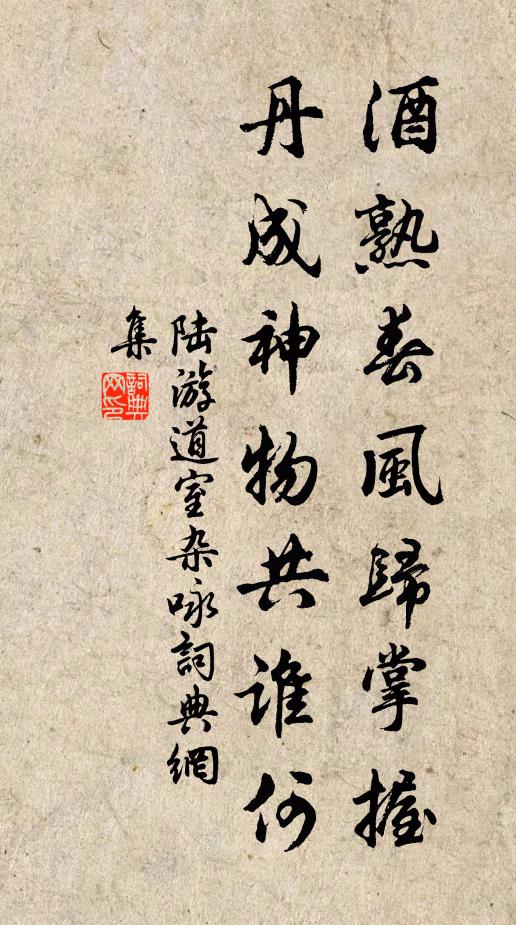 酒熟春風歸掌握
丹成神物共誰何
陆游道室杂咏詞典網
集
詞典网印